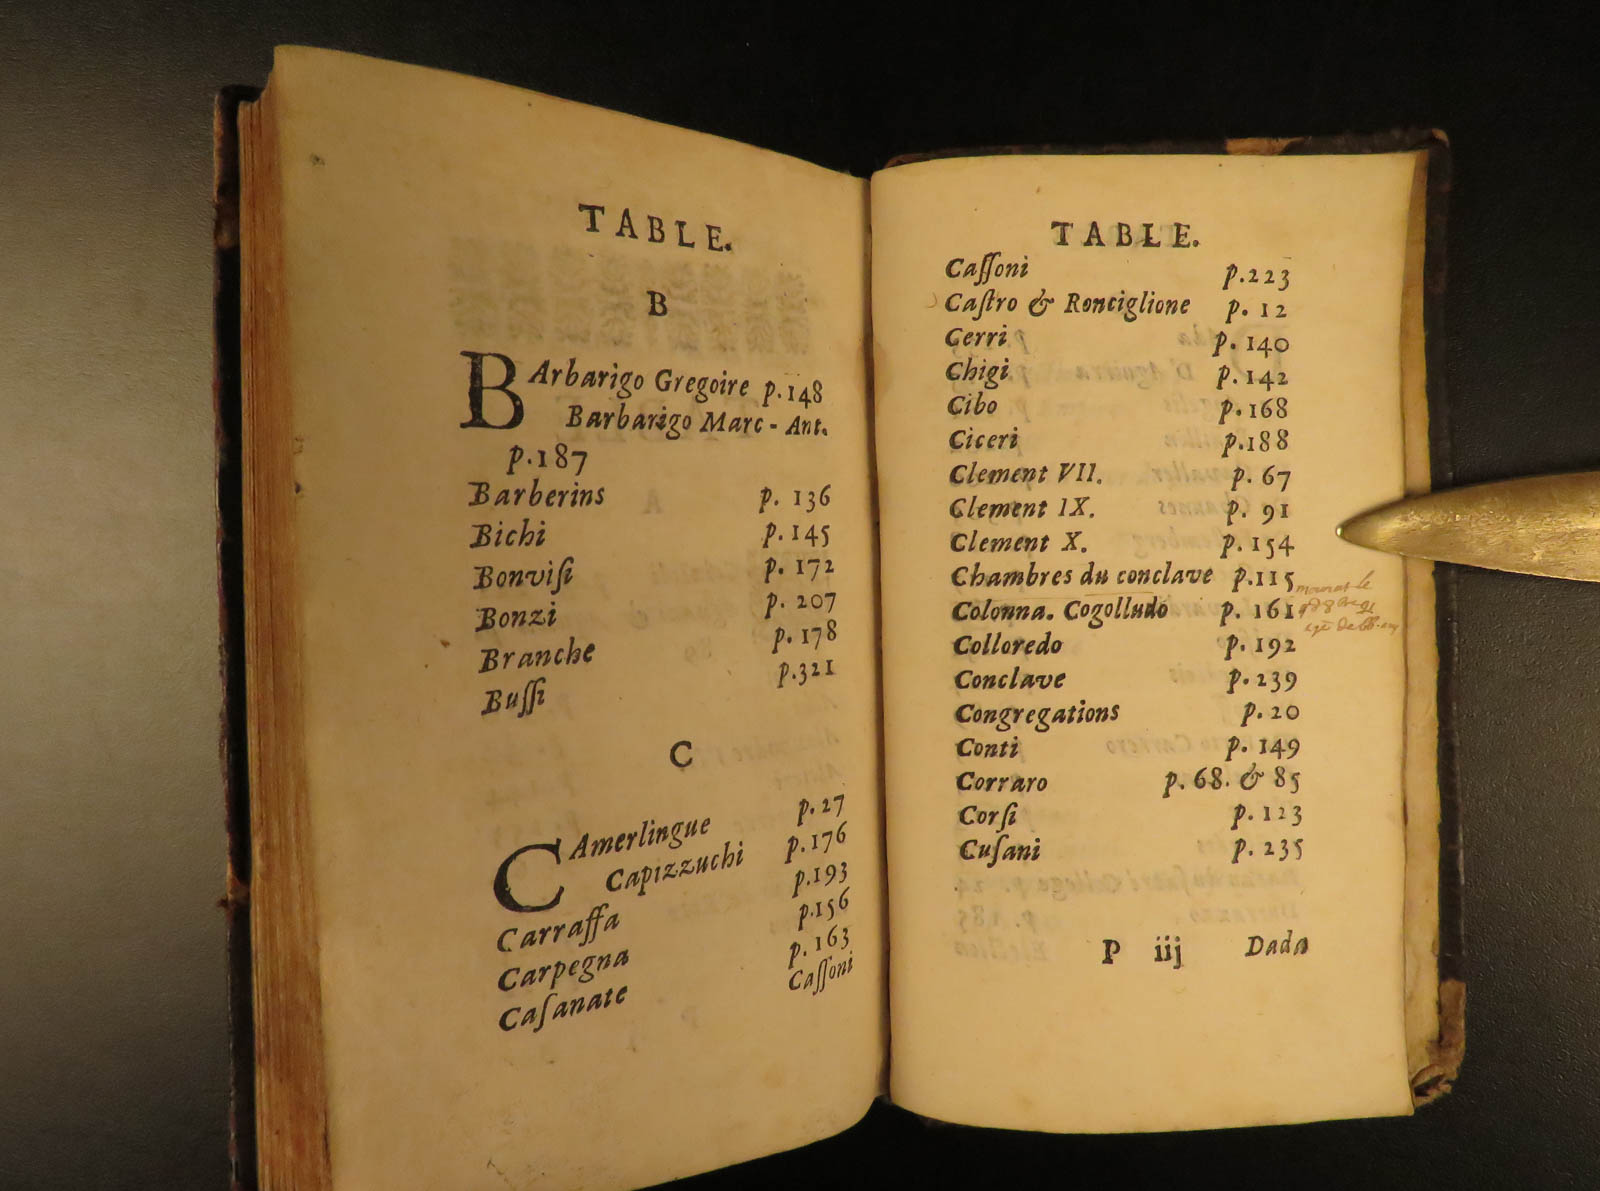 TABLE.
B
BArbarigo Gregoire p.148
Barbarigo Marc-Ant.
p.187
Barberins p. 136
Bichi p.145
Bonviſi p. 172
Bonzi p. 207
Branche p. 178
Buſſi p.321
C
CAmerlingue p.27
Capizzuchi p.176
Carraffa p.193
Carpegna p.156
Caſanate p. 163
Caſſoni
TABLE.
Caſſoni p.223
Caſtro & Ronciglione p. 12
Cerri p. 140
Chigi p. 142
Cibo p. 168
Ciceri p.188
Clement VII. p. 67
Clement IX. p. 91
Clement X. p. 154
Chambres du conclave p.115
Colonna. Cogolludo p. 161
Colloredo p. 192
Conclave p. 239
Congregations p. 20
Conti p. 149
Corraro p. 68. & 85
Corſi p. 123
Cuſani p. 235
P iij Dada